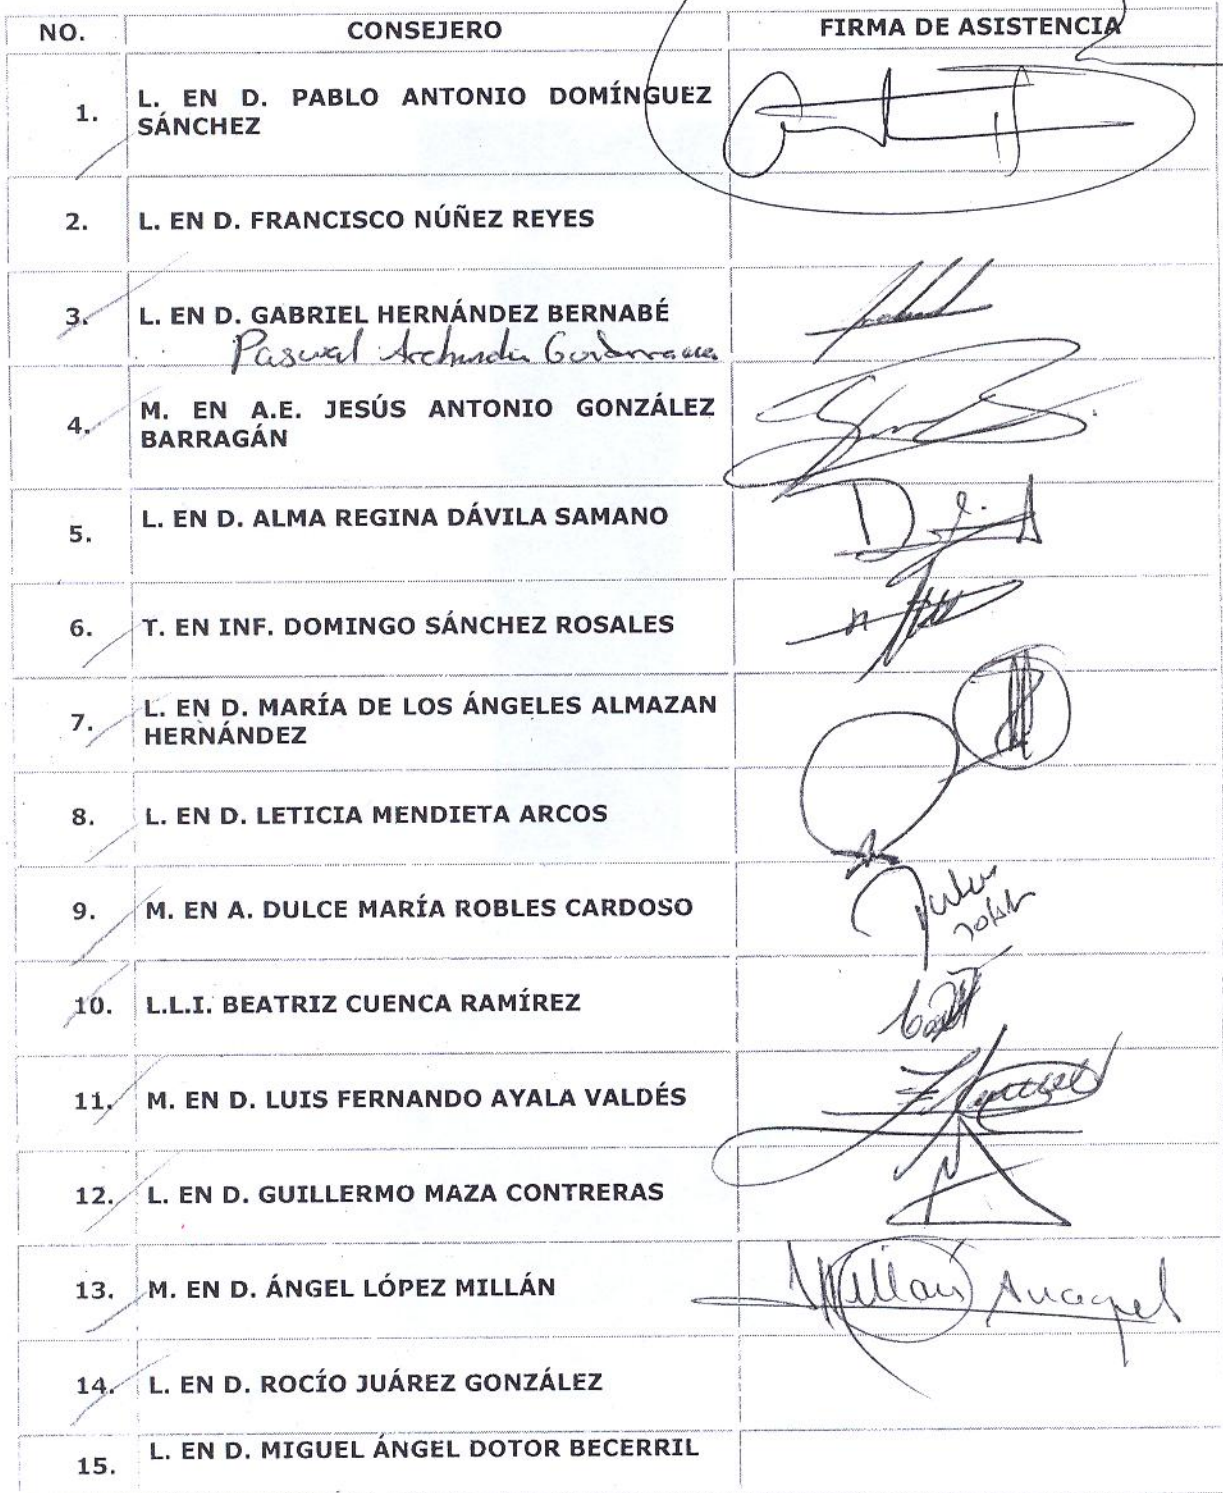 NO. CONSEJERO FIRMA DE ASISTENCIA
1. L. EN D. PABLO ANTONIO DOMÍNGUEZ
SÁNCHEZ
2. L. EN D. FRANCISCO NÚÑEZ REYES
3. L. EN D. GABRIEL HERNÁNDEZ BERNABÉ
Pascual
4. M. EN A.E. JESÚS ANTONIO GONZÁLEZ
BARRAGÁN
5. L. EN D. ALMA REGINA DÁVILA SAMANO
6. T. EN INF. DOMINGO SÁNCHEZ ROSALES
7. L. EN D. MARÍA DE LOS ÁNGELES ALMAZAN
HERNÁNDEZ
8. L. EN D. LETICIA MENDIETA ARCOS
9. M. EN A. DULCE MARÍA ROBLES CARDOSO
10. L.L.I. BEATRIZ CUENCA RAMÍREZ
11. M. EN D. LUIS FERNANDO AYALA VALDÉS
12. L. EN D. GUILLERMO MAZA CONTRERAS
13. M. EN D. ÁNGEL LÓPEZ MILLÁN Millan
14. L. EN D. ROCÍO JUÁREZ GONZÁLEZ
15. L. EN D. MIGUEL ÁNGEL DOTOR BECERRIL